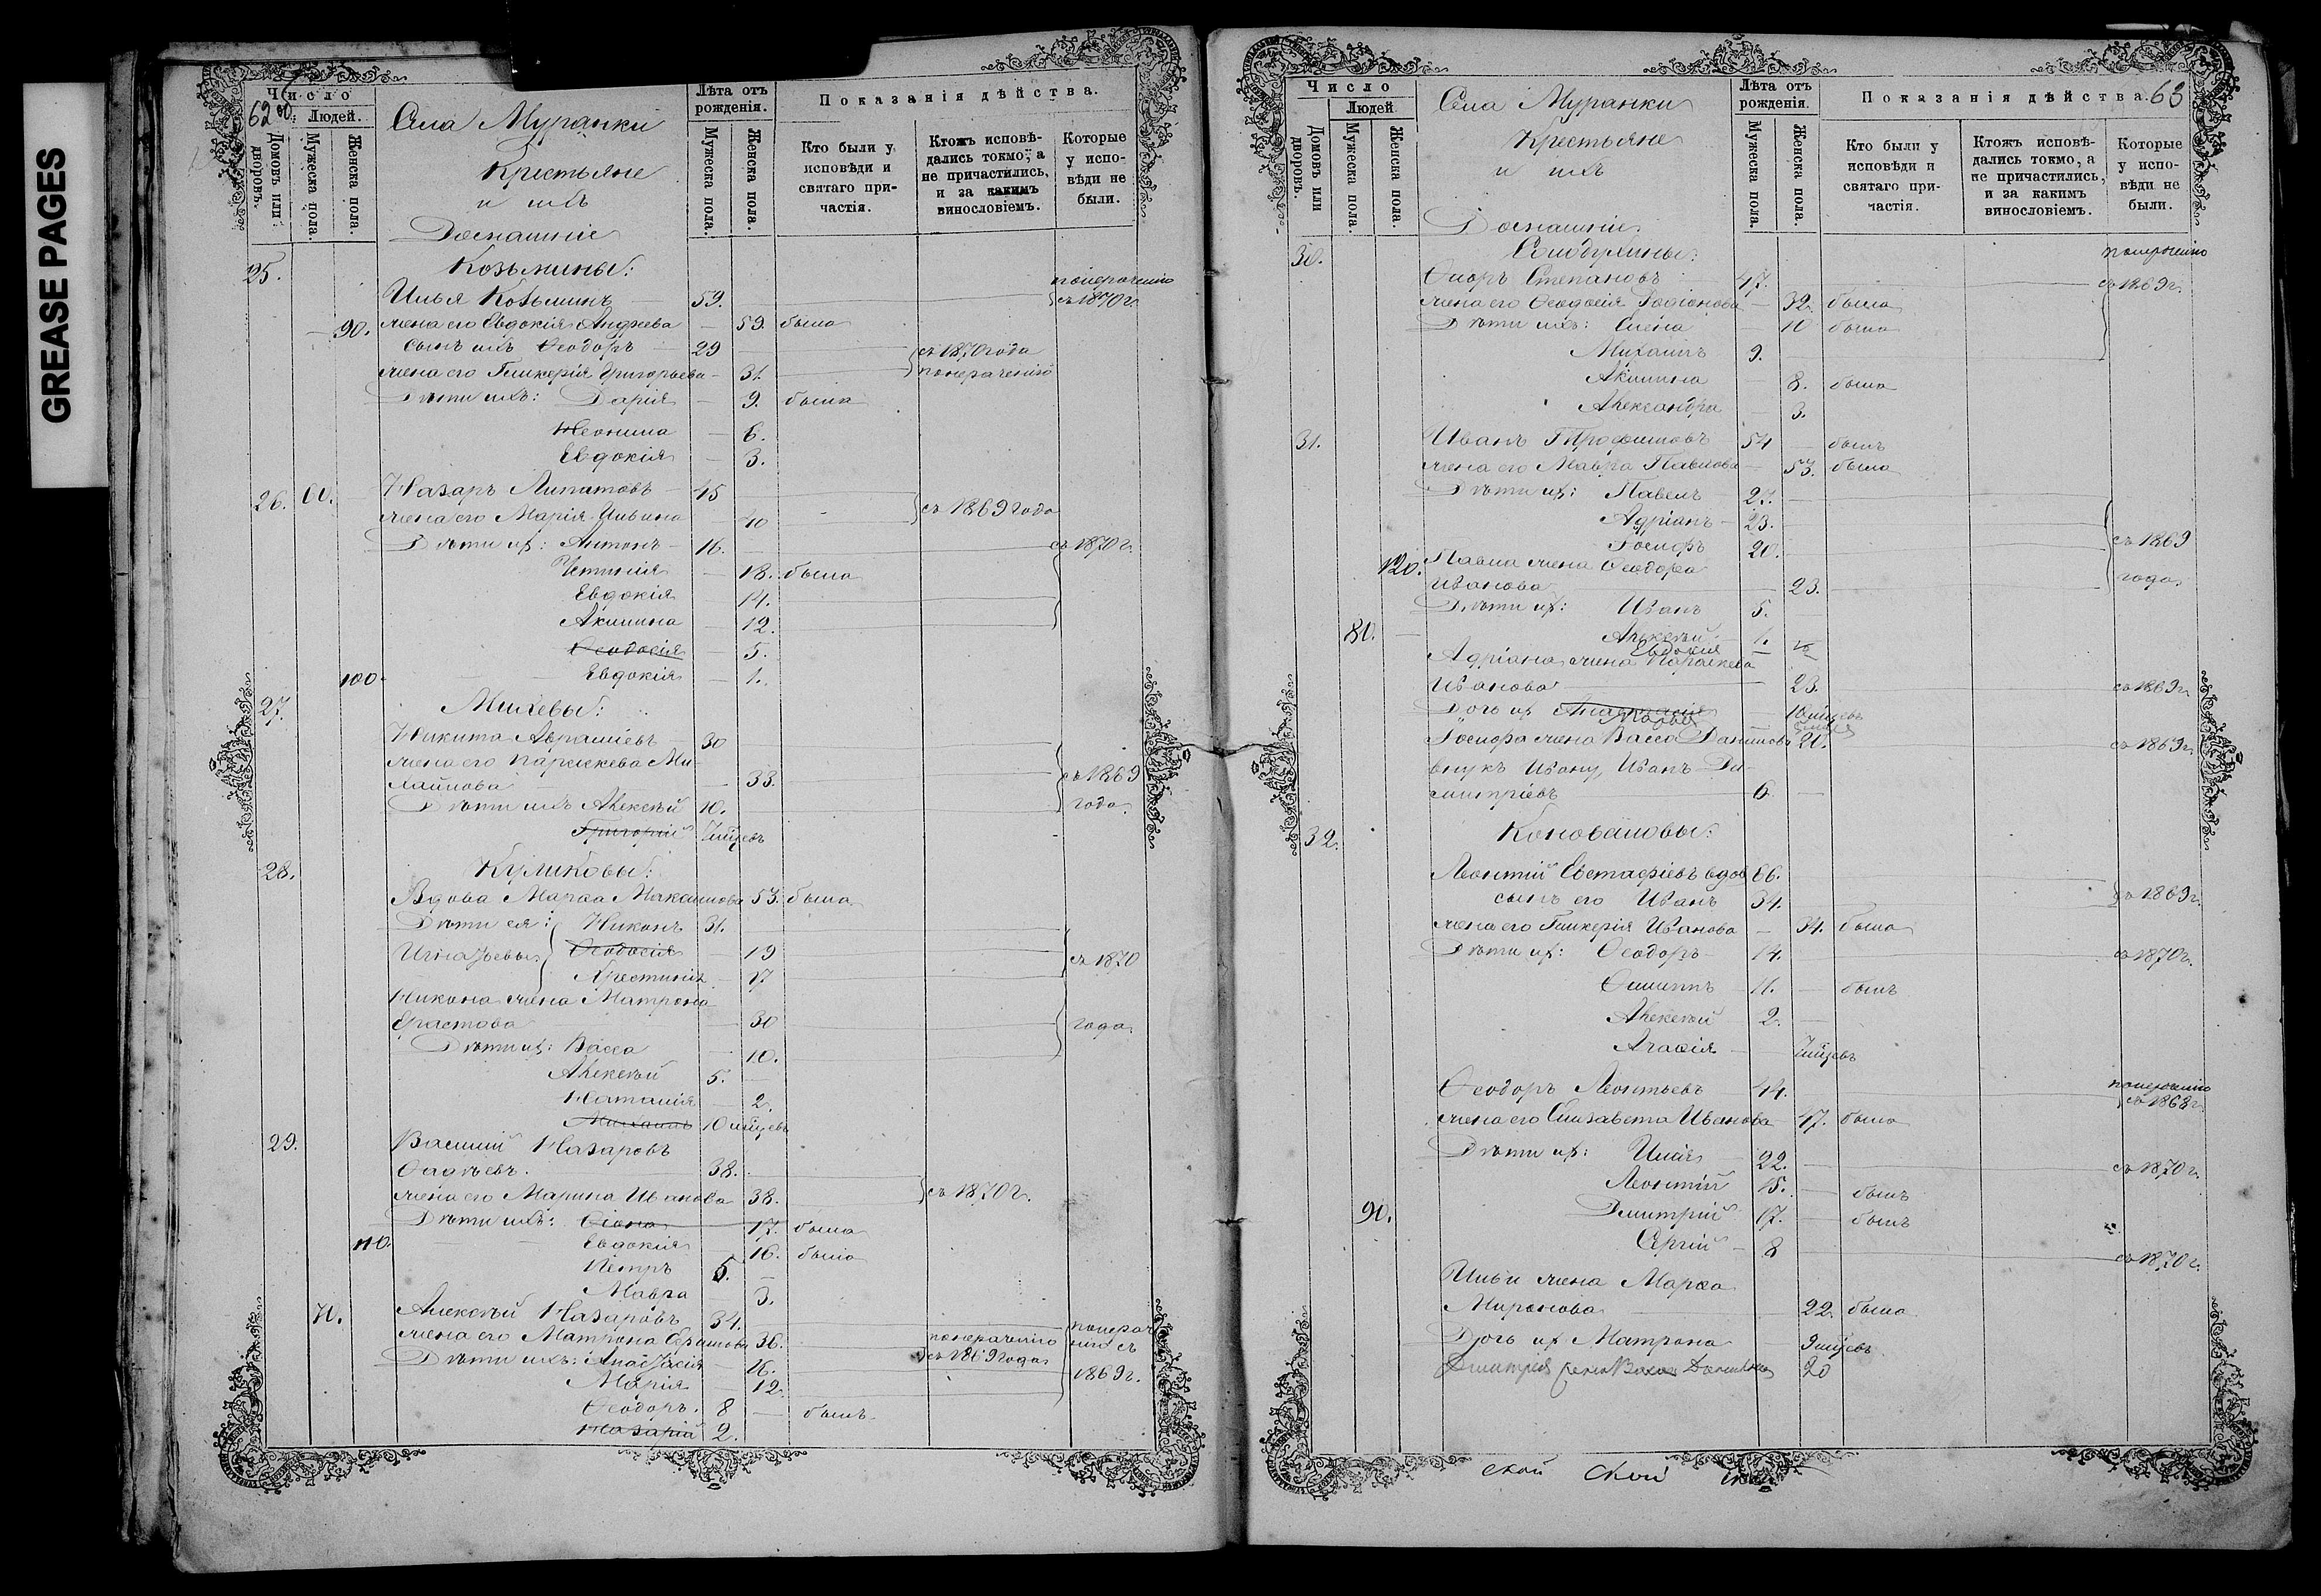 GREASE PAGES
62
Число
Людей.
Домовъ или дворовъ.
Мужеска пола.
Женска пола.
Села Муранки
Крестьяне
и ихъ
Домашніе
Лѣта отъ рожденія.
Мужеска пола.
Женска пола.
Показанія дѣйства.
Кто были у исповѣди и святаго причастія.
Ктожъ исповѣдались токмо, а не причастились, и за какимъ винословіемъ.
Которые у исповѣди не были.
25. Козьмины:
Илья Козьминъ 59. понерачению съ 1870 г.
90. жена его Евдокія Андреева 59. была
сынъ ихъ Ѳеодоръ 29 съ 1870 года
жена его Гликерія Григорьева 31. понерачению
Дѣти ихъ: Дарія 9. была
Неонила 6.
Евдокія 3.
26. 60. Назаръ Липатовъ 45
жена его Марія Ильина 40 съ 1869 года
Дѣти ихъ: Антонъ 16. съ 1870 г.
Устинія 18. была
Евдокія 14.
Акилина 12.
Ѳеодосія 5.
100. Евдокія 1.
27. Михѣевы:
Никита Авраміевъ 30
жена его Параскева Ми-
хайлова 33. съ 1869
Дѣти ихъ Алексѣй 10. года
Григорій 7 мѣсяцевъ
28. Куликовы:
Вдова Марѳа Максимова 53. была
Дѣти ея: Никонъ 31.
Игнатьевы Ѳеодосія 19 съ 1870
Христинія 17
Никона жена Матрона
Ерастова 30 года
Дѣти ихъ: Васса 10.
Алексѣй 5.
Наталія 2.
Михаилъ 10 мѣсяцевъ
29. Василій Назаровъ
Ѳадѣевъ. 38.
жена его Марина Иванова 38. съ 1870 г.
Дѣти ихъ: 17. была
110. Евдокія 16. была
Петръ 5.
Мавра 3.
70. Алексѣй Назаровъ 34.
жена его Матрона 36. понерачению
Дѣти ихъ: Анастасія 16. съ 1869 года
Марія 12. 1869 г.
Ѳеодоръ. 8 былъ
Назарій 2.
63
Число
Людей
Домовъ или дворовъ.
Мужеска пола.
Женска пола.
Села Муранки
Крестьяне
и ихъ
Домашніе
Лѣта отъ рожденія.
Мужеска пола.
Женска пола.
Показанія дѣйства.
Кто были у исповѣди и святаго причастія.
Ктожъ исповѣдались токмо, а не причастились, и за какимъ винословіемъ.
Которые у исповѣди не были.
30.
Степановъ 47. понерачению съ 1869 г.
жена его Ѳеодосія Родіонова 32. была
Дѣти ихъ: Елена 10 была
Михаилъ 9.
Акилина 8. была
Александра 3.
31. Иванъ Трофимовъ 54 былъ
жена его Мавра Павлова 53. была
Дѣти ихъ: Павелъ
Адріанъ 23.
Іосифъ 20. съ 1869
120. Павла жена Ѳеодора
Иванова 23. года
Дѣти ихъ: Иванъ 5.
80. Алексѣй 1.
Евдокия
Адріана жена Параскева
Иванова 23. съ 1869 г.
Дочь ихъ 10 мѣсяцевъ
Марья
Іосифа жена Васса Данилова 20. съ 1869 г.
внукъ Ивану, Иванъ Ди-
митріевъ 6
32. Коноваловы:
Леонтій Евстафіевъ вдов 66.
сынъ его Иванъ 34. съ 1869 г.
жена его Гликерія Иванова 34. была
Дѣти ихъ: Ѳеодоръ 14. съ 1870 г.
Филиппъ 11. былъ
Алексѣй 2.
Агафія 7 мѣсяцевъ
Ѳеодоръ Леонтьевъ 44. понерачению съ 1868 г.
жена его Елизавета Иванова 47. была
Дѣти ихъ: Илья 22. съ 1870 г.
Леонтій 15. былъ
90. Дмитрій 17. былъ
Сергій 8 съ 1870 г.
Ильи жена Марѳа
Миронова 22. была
Дочь ихъ Матрона 9 мѣсяцевъ
Дмитрія жена Васса Данилова 20
ской ской